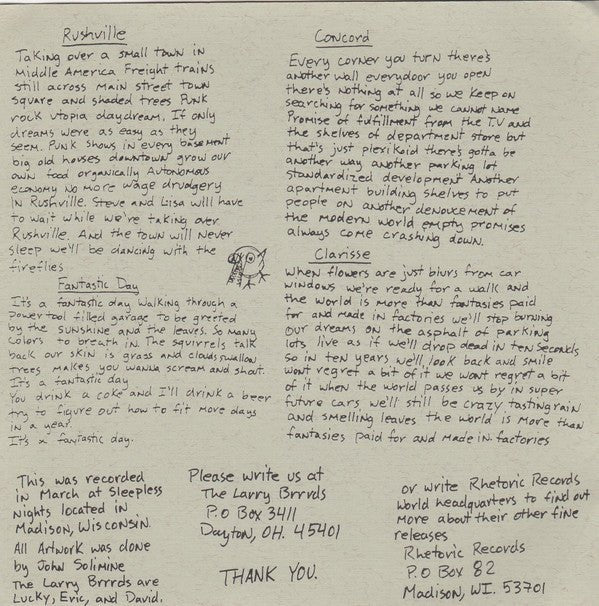 Rushville
Taking over a small town in
Middle America Freight trains
still across main street town
square and shaded trees Punk
rock utopia daydream. If only
dreams were as easy as they
seem. Punk shows in every basement
big old houses downtown grow our
own food organically Autonomous
economy no more wage drudgery
in Rushville. Steve and Lisa will have
to wait while we're taking over
Rushville. And the town will never
sleep we'll be dancing with the
fireflies
Fantastic Day
It's a fantastic day walking through a
power tool filled garage to be greeted
by the sunshine and the leaves. So many
colors to breath in The squirrels talk
back our skin is grass and clouds swallow
trees makes you wanna scream and shout.
It's a fantastic day
You drink a coke and I'll drink a beer
try to figure out how to fit more days
in a year.
It's a fantastic day.
Concord
Every corner you turn there's
another wall everydoor you open
there's nothing at all so we keep on
searching for something we cannot name
Promise of fulfillment from the T.V and
the shelves of department store but
that's just plexikoid there's gotta be
another way another parking lot
standardized development Another
apartment building shelves to put
people on another denoucement of
the modern world empty promises
always come crashing down.
Clarisse
when flowers are just blurs from car
windows we're ready for a walk and
the world is more than fantasies paid
for and made in factories we'll stop burning
our dreams on the asphalt of parking
lots live as if we'll drop dead in ten seconds
so in ten years we'll look back and smile
wont regret a bit of it we wont regret a bit
of it when the world passes us by in super
future cars we'll still be crazy tasting rain
and smelling leaves the world is more than
fantasies paid for and made in factories
This was recorded
in March at Sleepless
Nights located in
Madison, Wisconsin.
All Artwork was done
by John Solimine
The Larry Brrrds are
Lucky, Eric, and David.
Please write us at
The Larry Brrrds
P.O Box 3411
Dayton, OH. 45401
THANK YOU.
or write Rhetoric Records
World headquarters to find out
more about their other fine
releases
Rhetoric Records
P.O Box 82
Madison, WI. 53701